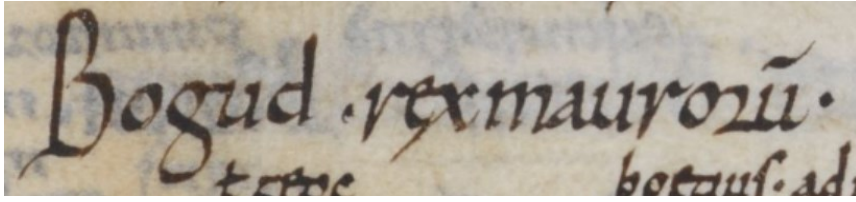 Bogud · rex maurorū·